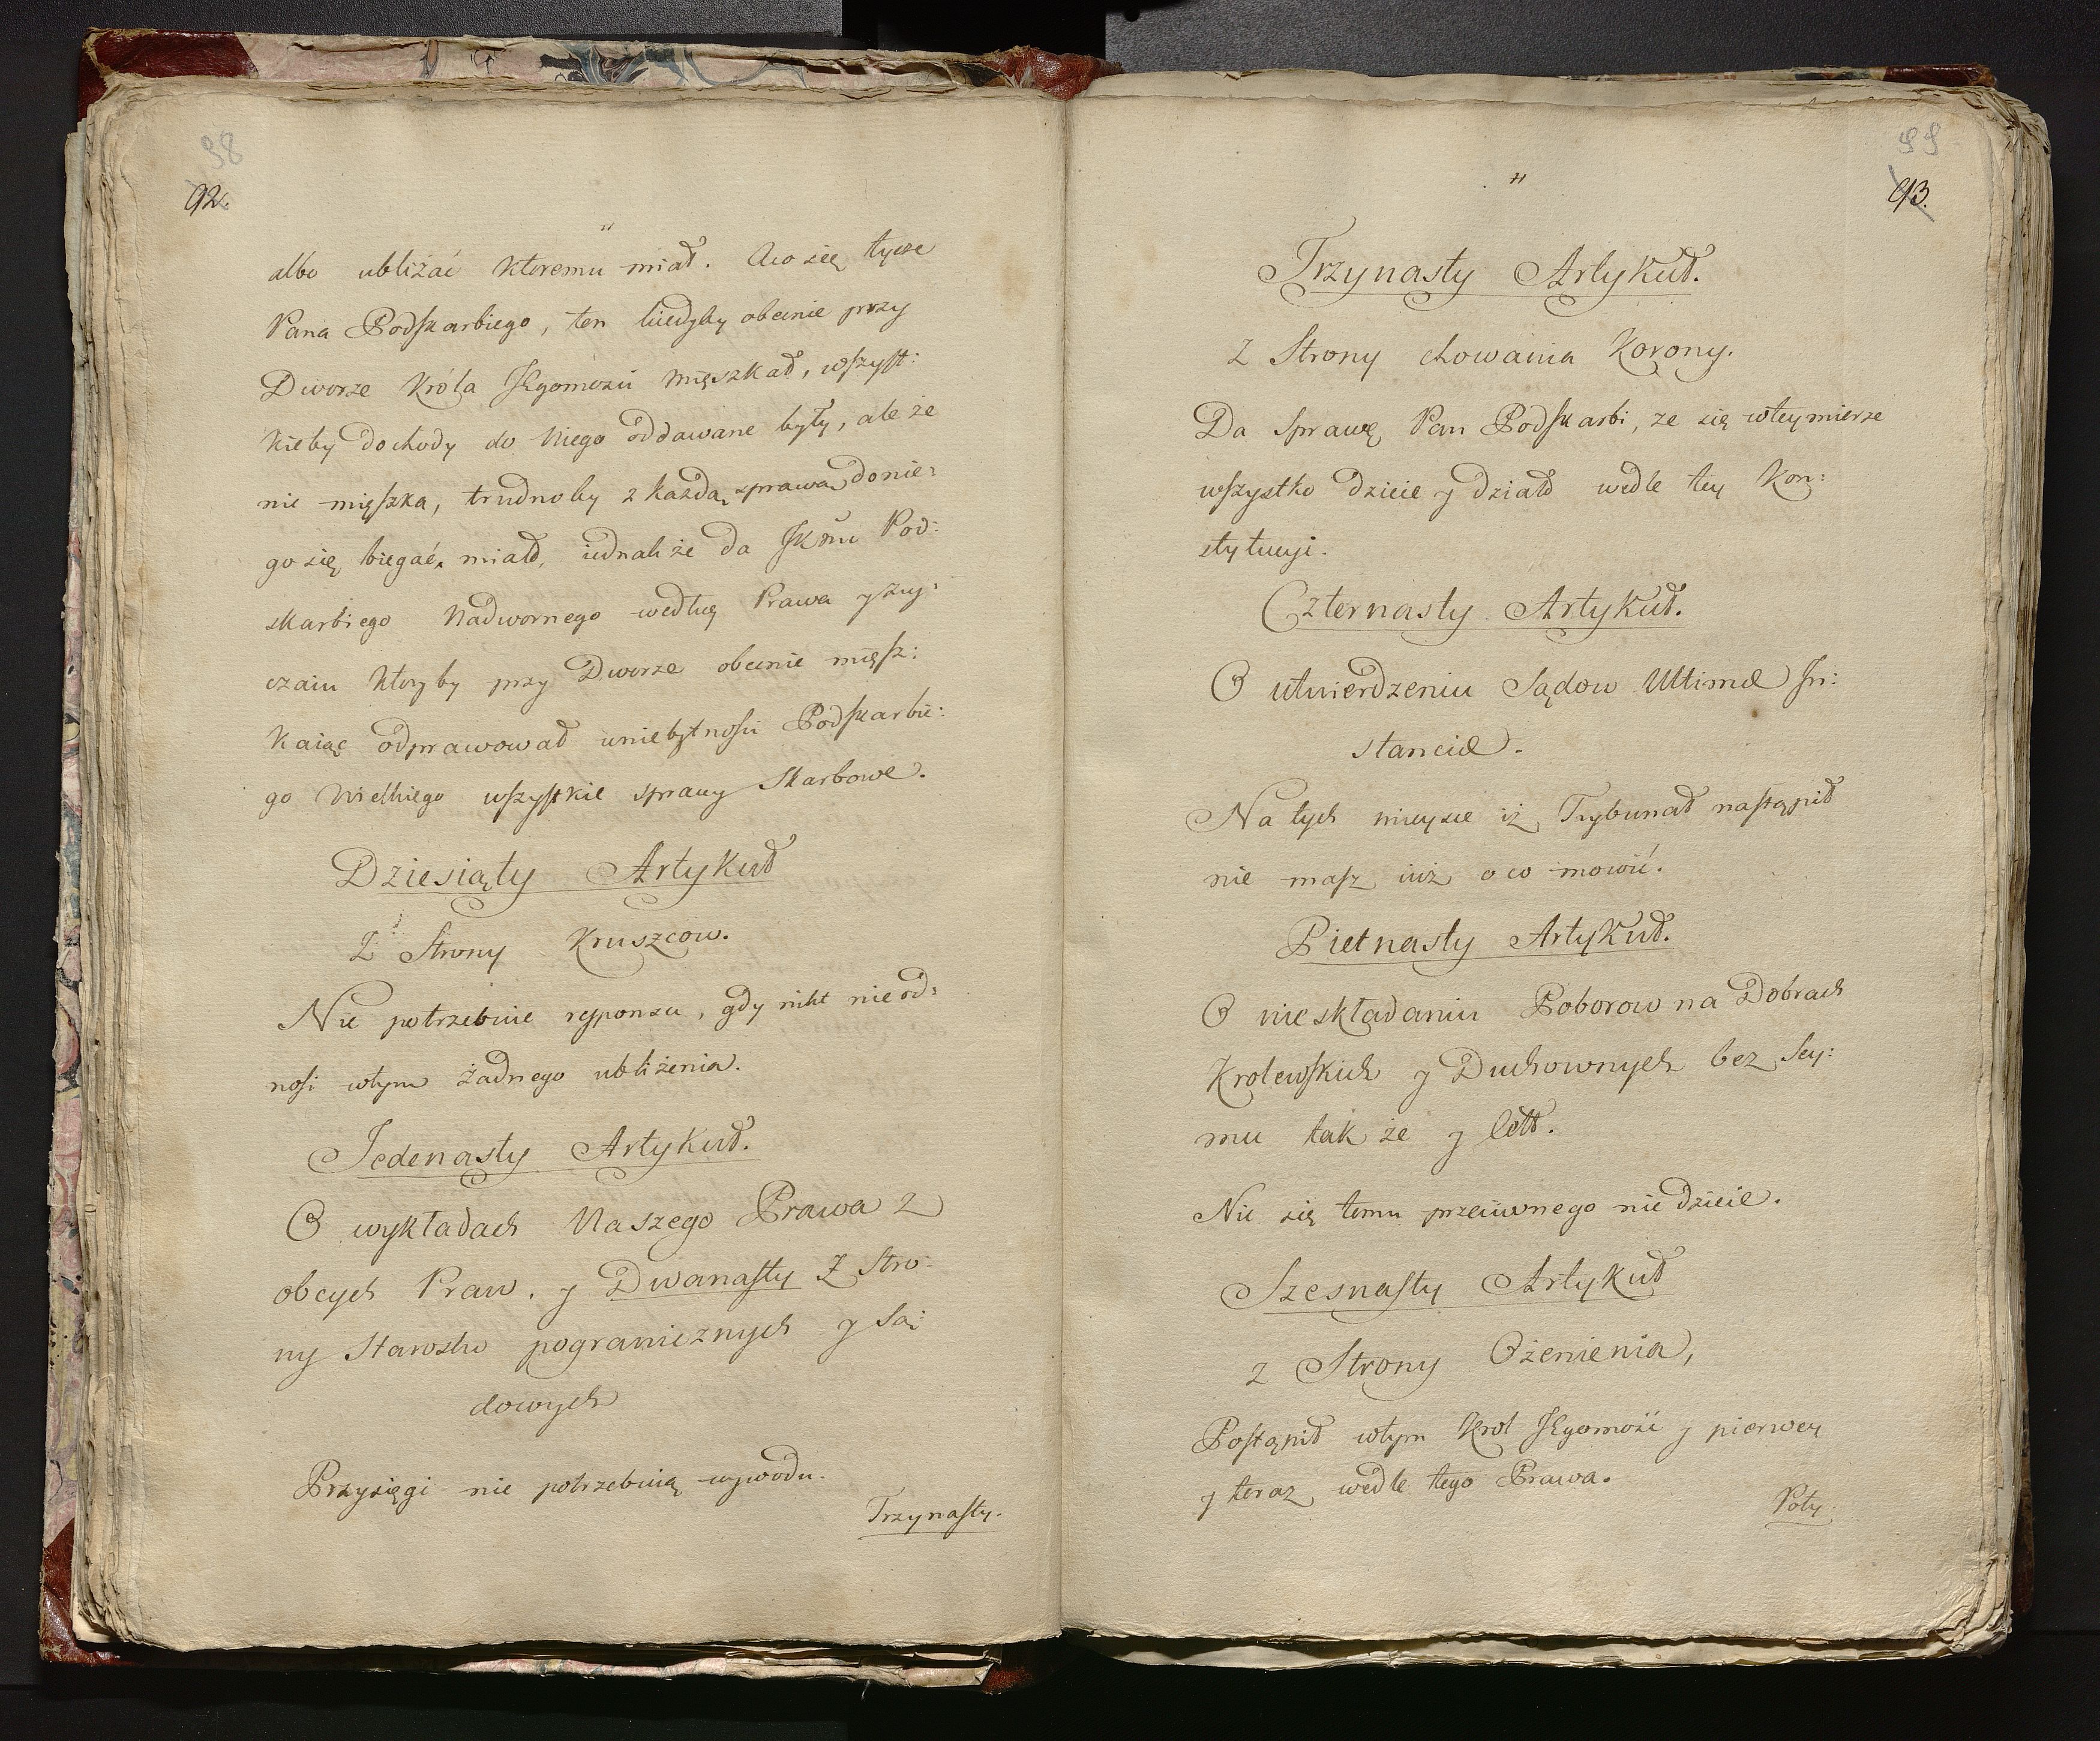 98
92.
albo ubliżać ktoremu miał. Aco się tycze
Pana Podskarbiego, ten kiedyby obecnie przy
Dworze Króla JEgomości mięszkał, wszyst:
kieby dochody do Niego oddawane były, ale że
nie mięszka, trudnoby z każdą sprawą donie:
go się biegać miało, iednakże da JKmć Pod:
skarbiego Nadwornego według Prawa y zwy:
czaiu ktoryby przy Dworze obecnie mięsz:
kaiąc odprawował wniebytności Podskarbie:
go Wielkiego wszystkie sprawy Skarbowe.
Dziesiąty Artykuł
Z Strony Kruszcow.
Nie potrzebuie responsu, gdy nikt nie od:
nosi wtym żadnego ubliżenia.
Jedenasty Artykuł.
O wykładach Naszego Prawa z
obcych Praw. y Dwanasty Z Stro:
ny Starostw pogranicznych y Są:
dowych
Przysięgi nie potrzebuią wywodu.
Trzynasty.
99
93.
Trzynasty Artykuł.
Z Strony chowania Korony.
Da sprawę Pan Podskarbi, ze się wtey mierze
wszystko dzieie y działo wedle tey Kon:
stytucyi.
Czternasty Artykuł.
O utwierdzeniu Sądow Ultimæ In:
stanciæ.
Na tych mieysce iż Trybunał nastąpił
nie masz iuż o co mowić.
Pietnasty Artykuł.
O nieskładaniu Poborow na Dobrach
Krolewskich y Duchownych bez Sey:
mu tak że y Cełł.
Nic się temu przeciwnego nie dzieie.
Szesnasty Artykuł
z Strony Ożenienia,
Postąpił wtym Krol JEgomość y pierwey
y teraz wedle tego Prawa.
Poty.